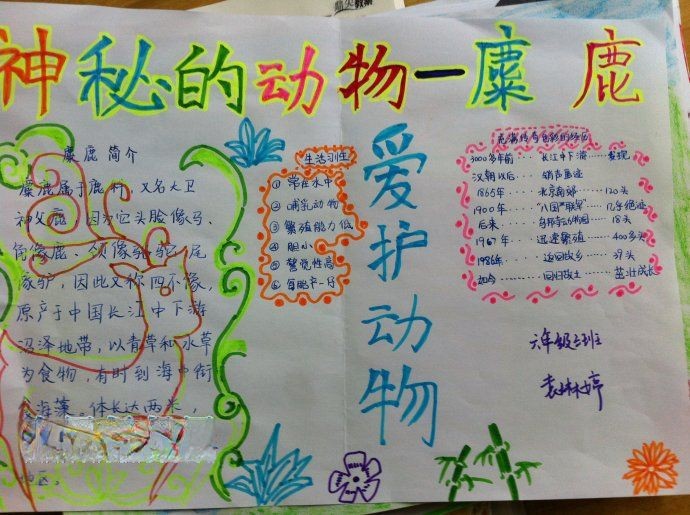 神秘的动物一麋鹿
麋鹿简介
麋鹿属于鹿科，又名大卫
神父鹿，因为它头脸像马、
角像鹿、颈像骆驼、尾
像驴，因此又称四不像，
原产于中国长江中下游
沼泽地带，以青草和水草
为食物，有时到海中衔
食海藻。体长达两米，
生活习性
①常在水中
②哺乳动物
③繁殖能力低
④胆小
⑤警觉性高
⑥每胎产一仔
爱护动物
充满传奇色彩的经历
3000多年前····长江中下游······发现
汉朝以后····销声匿迹
1865年·····北京南郊·····120头
1900年····"八国"联军····几乎绝迹
后来·····乌邦寺动物园····18头
1967年····迅速繁殖·····400多头
1986年·····返回故乡·····39头
如今·····回归故土·····茁壮成长
六年级三班
袁琳婷